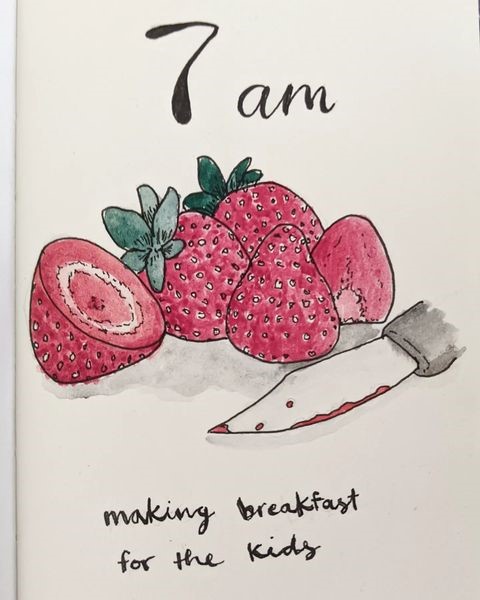 7 am
making breakfast
for the kids